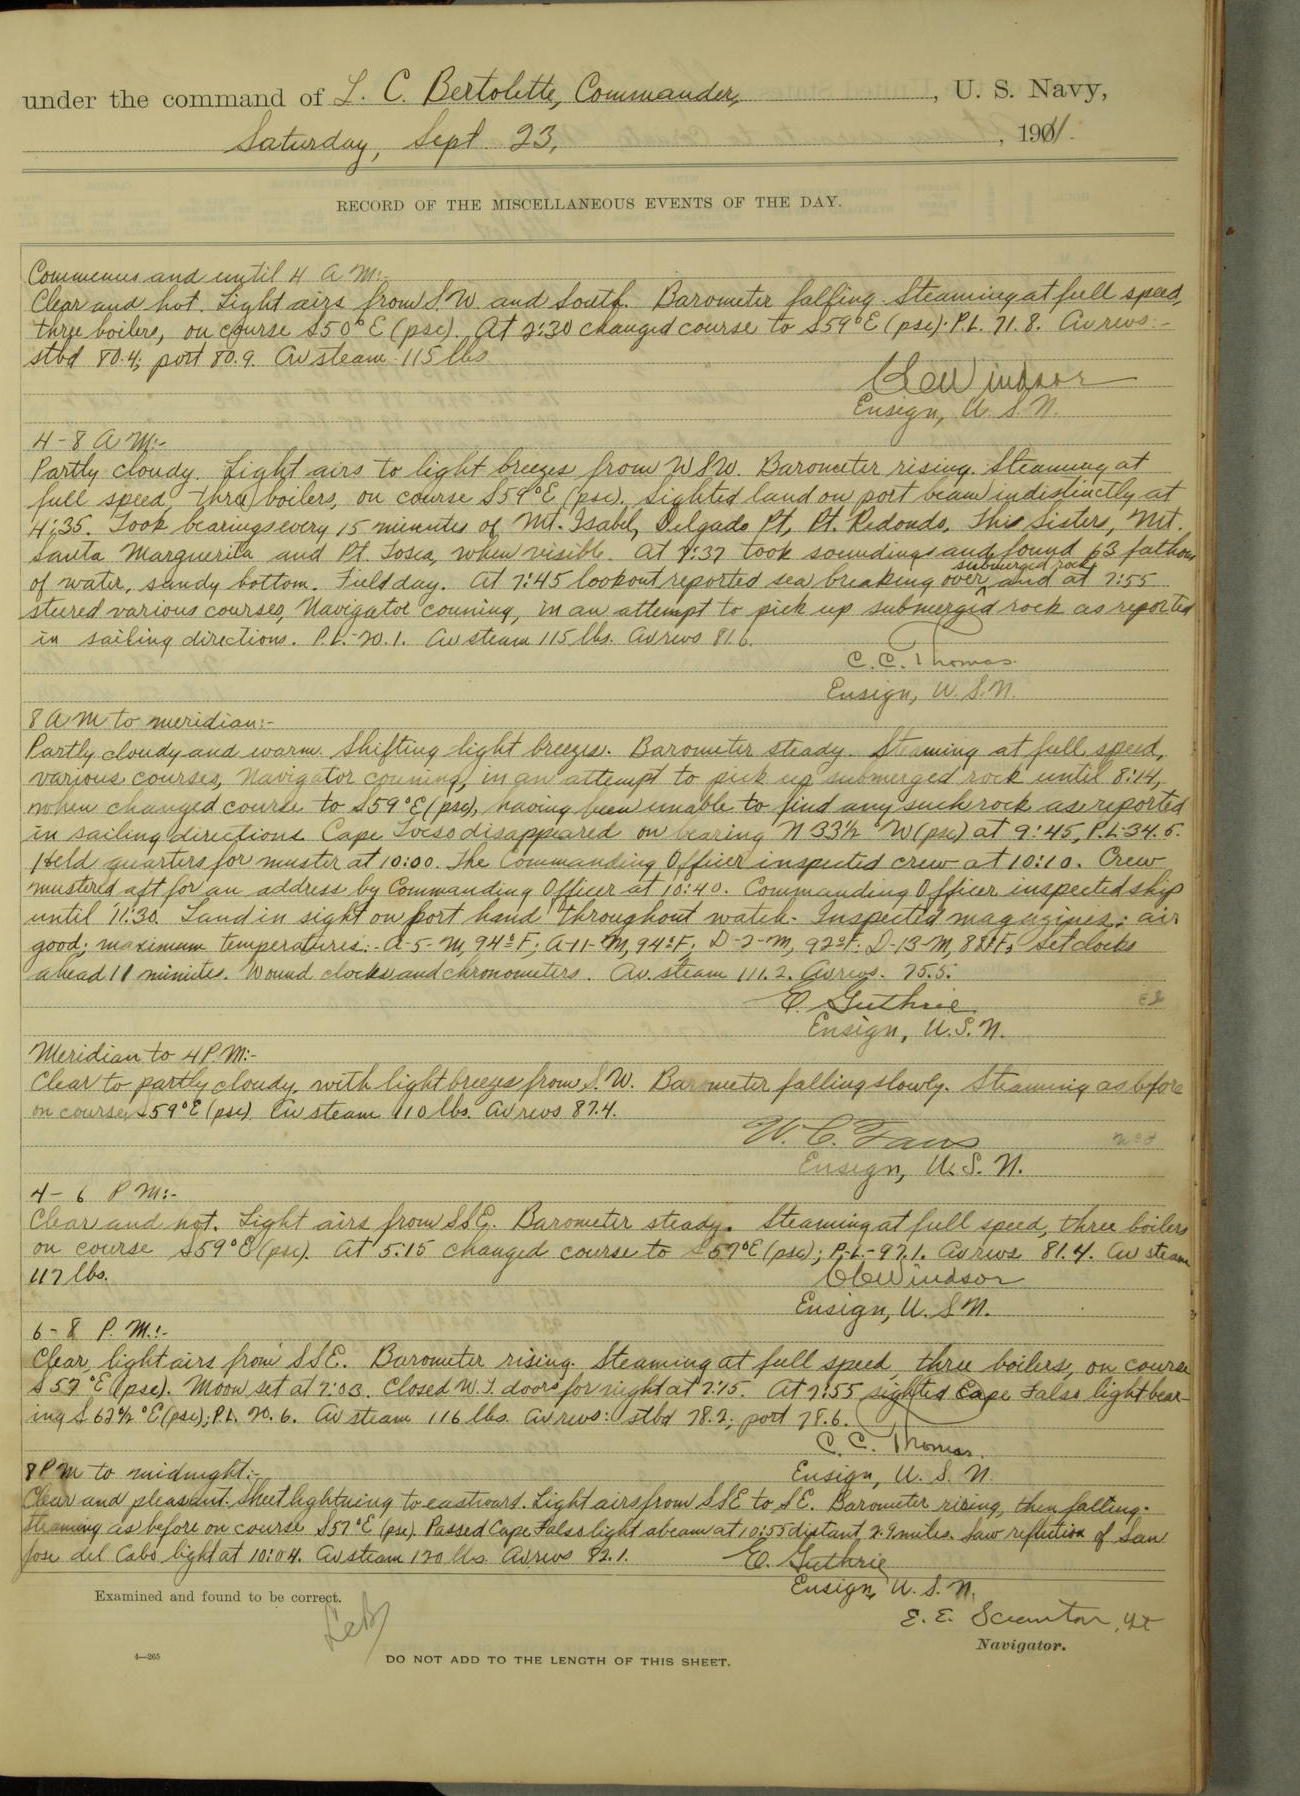 under the command of L. C. Bertolette, Commander, , U. S. Navy,
Saturday, Sept. 23, , 1911.
RECORD OF THE MISCELLANEOUS EVENTS OF THE DAY.
Commences and until 4 A M:-
Clear and hot. Light airs from S.W. and South. Barometer falling. Steaming at full speed,
three boilers, on course S50°E (psc). At 2:30 changed course to S59°E (psc). P.L. 71.8. Av revs:-
stbd 80.4; port 80.9. Av steam 115 lbs
Windsor
Ensign, U. S. N.
4-8 A M:-
Partly cloudy. Light airs to light breezes from WSW. Barometer rising. Steaming at
full speed, three boilers, on course S59°E (psc). Sighted land on port beam indistinctly at
4:35. Took bearings every 15 minutes of Mt. Isabel, Delgado Pt, Pt. Redondo, The Sisters, Mt.
Santa Marguerita and Pt. Tosca, when visible. At 7:37 took soundings and found 63 fathoms
of water, sandy bottom. Field day. At 7:45 lookout reported sea breaking over submerged rock, and at 7:55
steered various courses, Navigator conning, in an attempt to pick up submerged rock as reported
in sailing directions. P.L.-20.1. Av steam 115 lbs. Av revs 81.6.
C. C. Thomas.
Ensign, U. S. N.
8 A M to meridian:-
Partly cloudy and warm. Shifting light breezes. Barometer steady. Steaming at full speed,
various courses, Navigator conning, in an attempt to pick up submerged rock until 8:14,
when changed course to S59°E (psc), having been unable to find any such rock as reported
in sailing directions. Cape Tosco disappeared on bearing N 33½ °W (psc) at 9:45, P.L. 34.5.
Held quarters for muster at 10:00. The Commanding Officer inspected crew at 10:10. Crew
mustered aft for an address by Commanding Officer at 10:40. Commanding Officer inspected ship
until 11:30. Land in sight on port hand throughout watch. Inspected magazines; air
good; maximum temperatures:- A-5-M, 94°F; A-11-M, 94°F; D-2-M, 92°F; D-13-M, 88°F; Set clocks
ahead 11 minutes. Wound clocks and chronometers. Av. steam 111.2. Av revs. 75.5.
E. Guthrie
Ensign, U. S. N.
Meridian to 4 P.M:-
Clear to partly cloudy, with light breezes from S.W. Barometer falling slowly. Steaming as before
on course S59°E (psc). Av steam 110 lbs. Av revs 87.4.
W. C. Faus
Ensign, U. S. N.
4- 6 P M:-
Clear and hot. Light airs from SSE. Barometer steady. Steaming at full speed, three boilers
on course S59°E (psc). At 5:15 changed course to S57°E (psc); P.L.-97.1. Av revs 81.4. Av steam
117 lbs.
Windsor
Ensign, U. S. N.
6-8 P. M.:-
Clear, light airs from SSE. Barometer rising. Steaming at full speed, three boilers, on course
S 57°E (psc). Moon set at 7:03. Closed W. T. doors for night at 7:15. At 7:55 sighted Cape Falso light bear-
ing S 62½ °E (psc); P.L. 20.6. Av steam 116 lbs. Av revs: stbd 78.2; port 78.6.
C. C. Thomas.
Ensign, U. S. N.
8 P M to midnight:-
Clear and pleasant. Sheet lightning to eastward. Light airs from SSE to SE. Barometer rising, then falling.
Steaming as before on course S57°E (psc). Passed Cape Falso light abeam at 10:55 distant 2.9 miles. Saw reflection of San
Jose del Cabo light at 10:04. Av steam 120 lbs. Av revs 82.1.
E. Guthrie
Ensign, U. S. N.
Examined and found to be correct.
E. E. Scranton, Lt
Navigator.
4—265
DO NOT ADD TO THE LENGTH OF THIS SHEET.